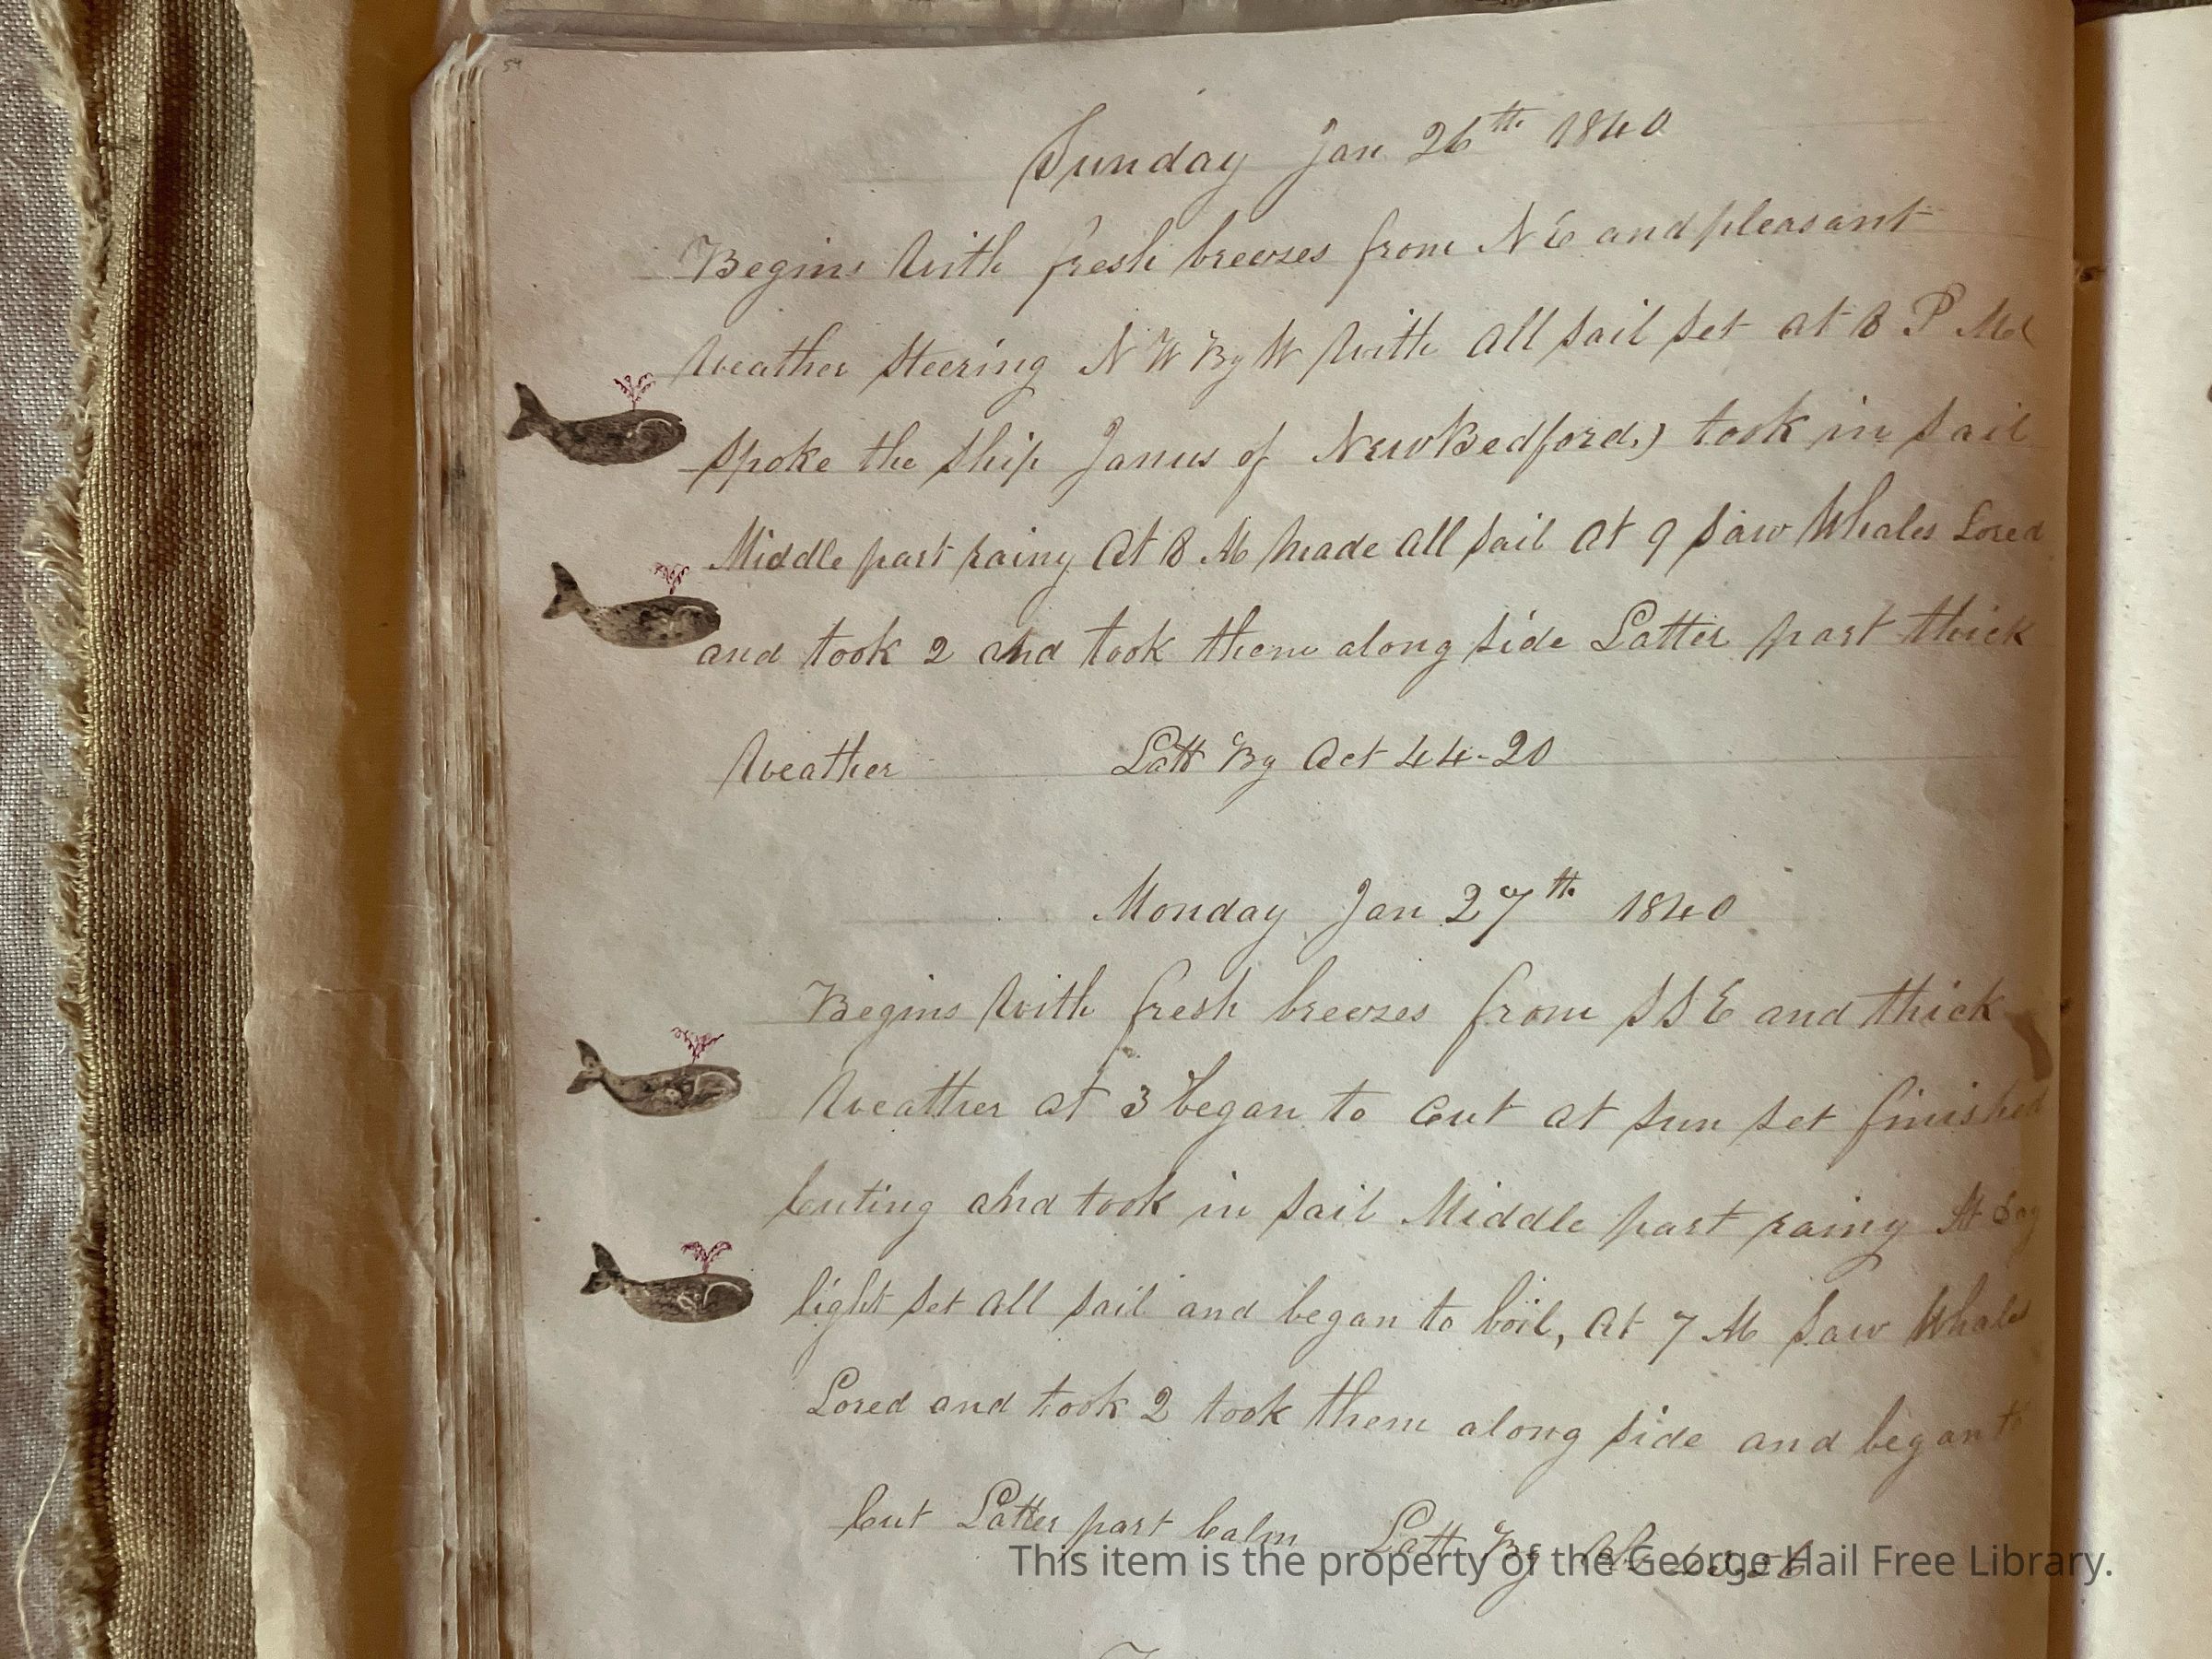 54
Sunday Jan 26th 1840
Begins With fresh breezes from N E and pleasant
Weather Steering N W By W With all sail set at 8 P M
Spoke the Ship Janus of New Bedford.) took in Sail
Middle part rainy At 8 M made all sail At 9 saw Whales Lored
and took 2 and took them along side Latter part thick
Weather Latt By Act 44-20
Monday Jan 27th 1840
Begins With fresh breezes from S S E and thick
Weather at 3 began to Cut at sun set finished
Cuting and took in sail Middle part rainy At day
light set all sail and began to boil, At 7 M saw Whals
Lored and took 2 took them along side and began to
Cut Latter part Calm Latt By
This item is the property of the George Hail Free Library.